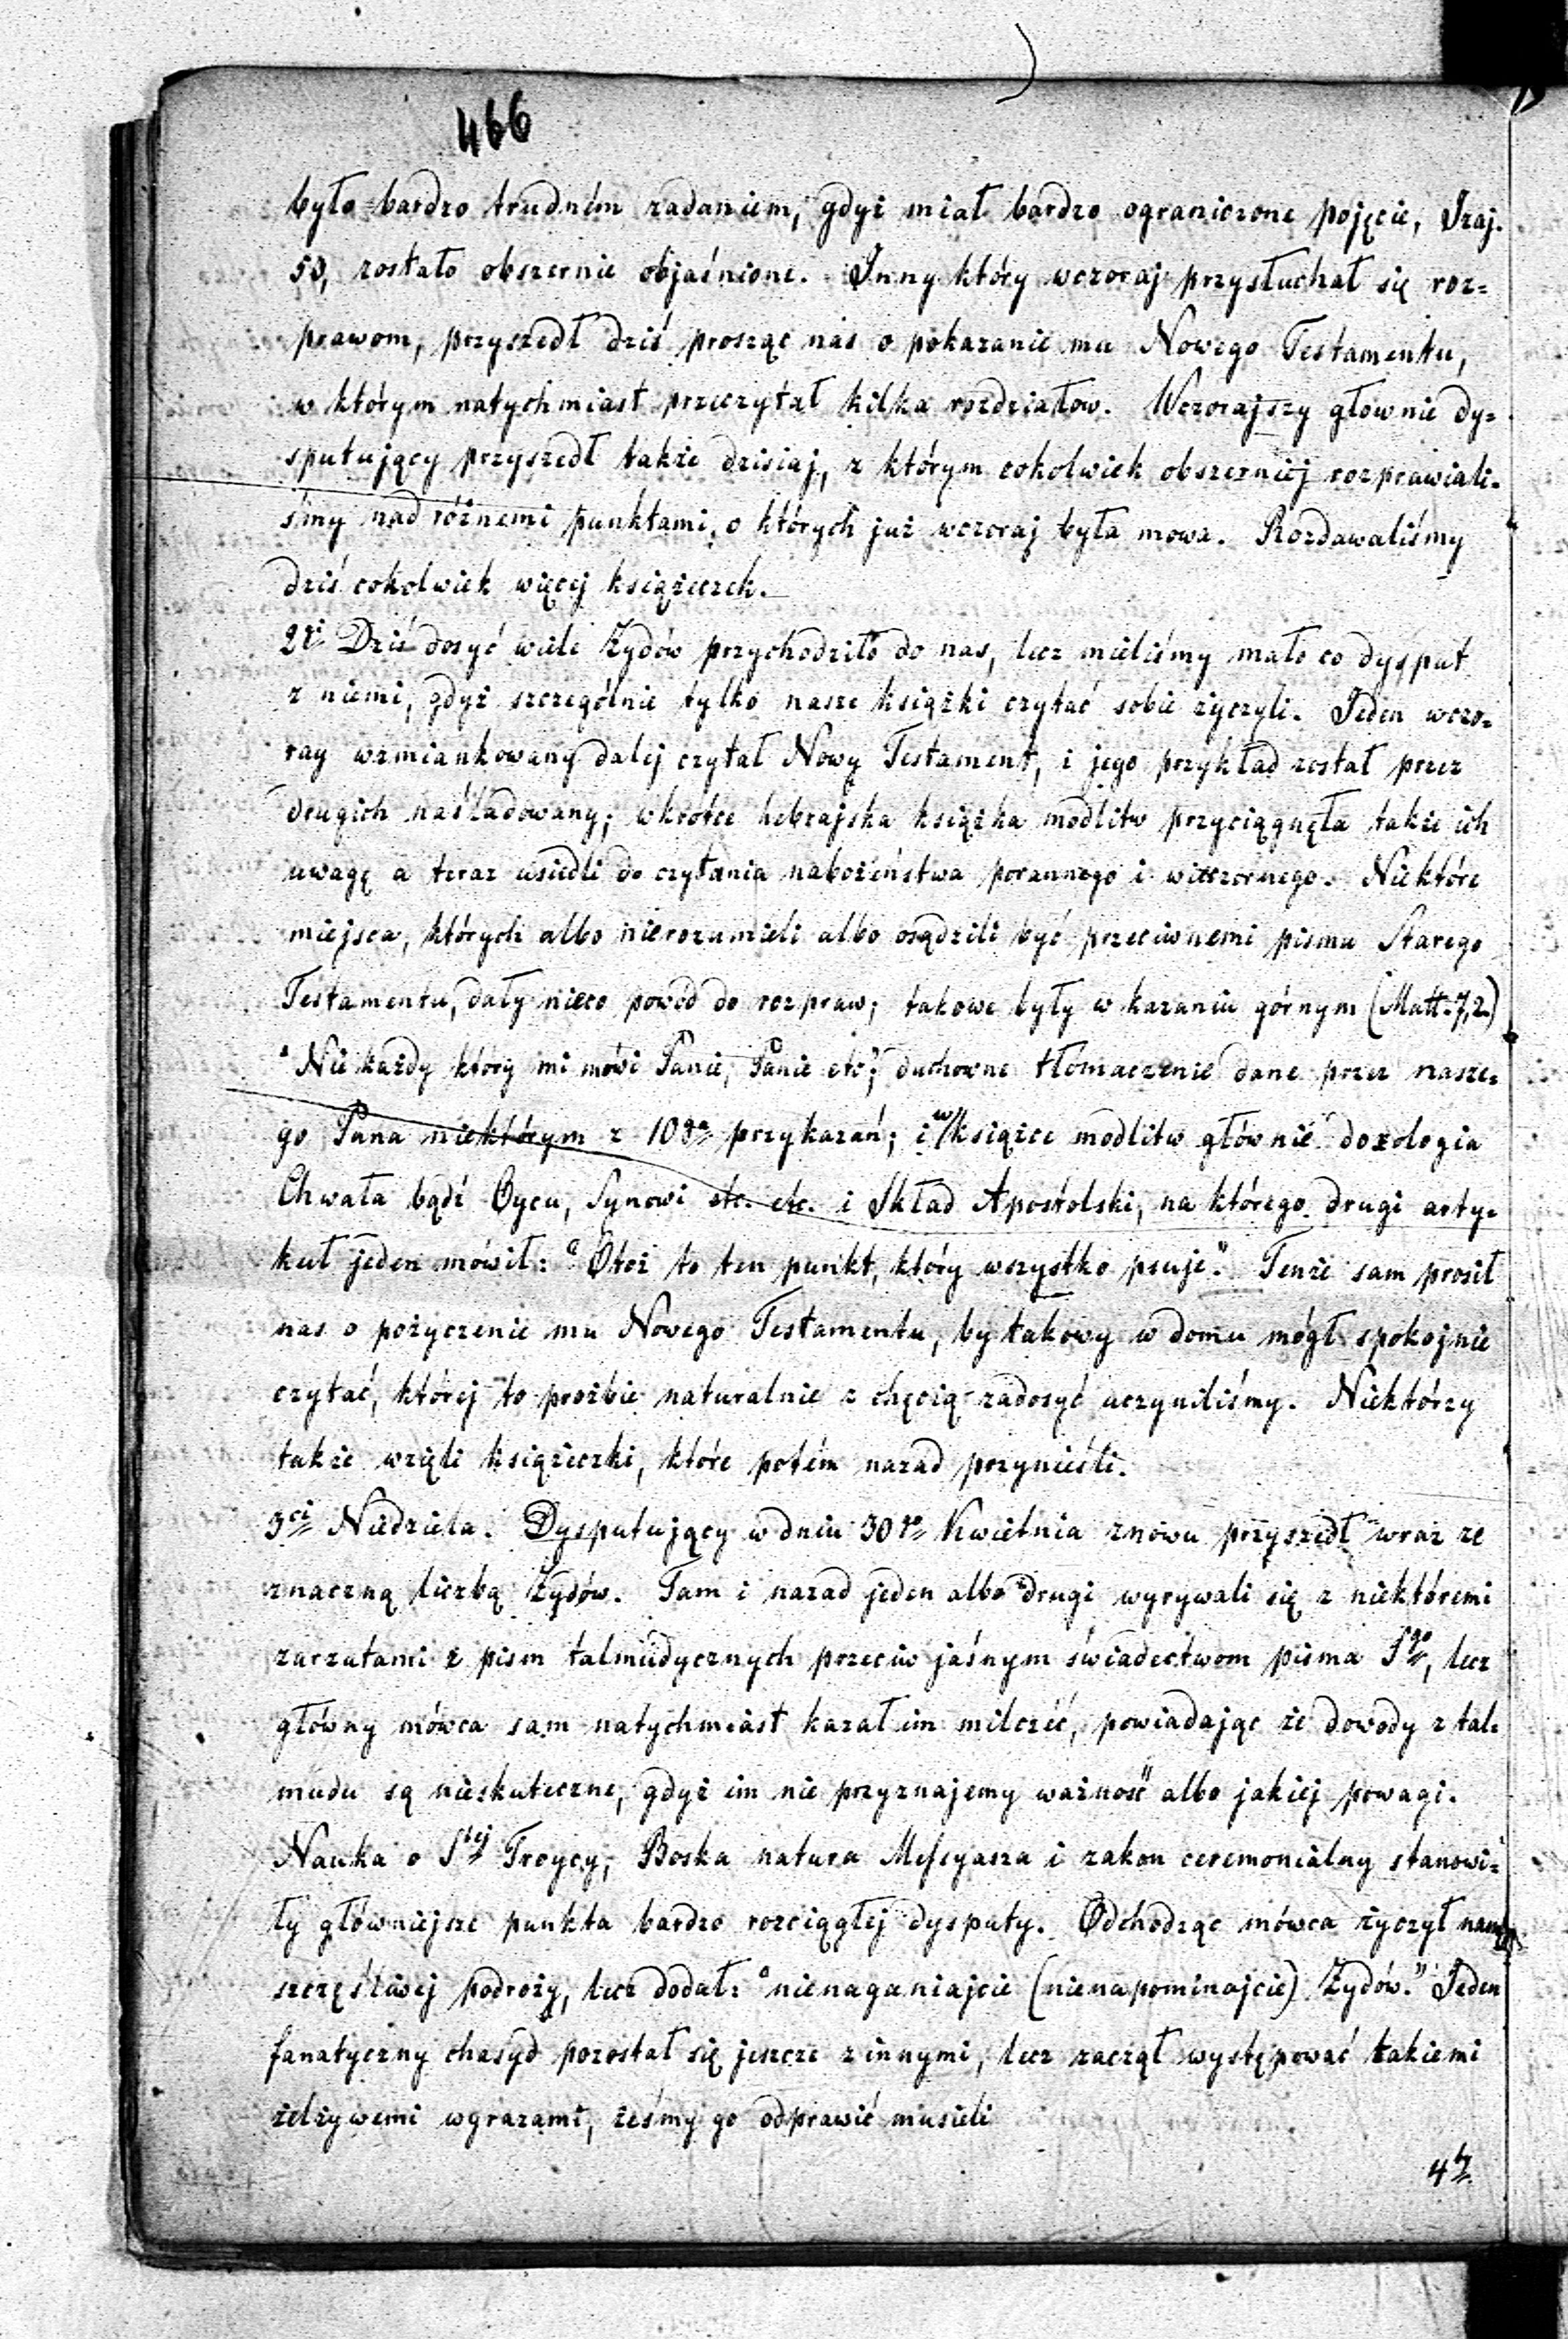 466
było bardzo trudném zadaniem, gdyż miał bardzo ograniczone pojęcie, Izaj.
53, zostało obszernie objaśnione. Inny który wczoraj przysłuchał się roz=
prawom, przyszedł dziś prosząc nas o pokazanie mu Nowego Testamentu,
w którym natychmiast przeczytał kilka rozdziałow. Wczorajszy głownie dy=
sputujący przyszedł także dzisiaj, z którym cokolwiek obszerniéj rozprawiali=
śmy nad różnemi punktami, o których już wczoraj była mowa. Rozdawaliśmy
dziś cokolwiek więcej książeczek.
2gi Dziś dosyć wiele Żydów przychodziło do nas, lecz mieliśmy mało co dysput
z niemi, gdyż szczególnie tylko nasze książki czytać sobie życzyli. Jeden wczo=
ray wzmiankowany dalej czytał Nowy Testament, i jego przykład został przez
drugich naśladowany; wkrótce hebrajska książka modlitw przyciągnęła także ich
uwagę a teraz usiedli do czytania nabożeństwa porannego i wieczornego. Niektóre
miejsca, których albo nierozumieli albo osądzili być przeciwnemi pismu Starego
Testamentu, dały nieco powód do rozpraw; takowe były w kazaniu górnym (Matt. 7,2.)
"Nie każdy który mi mówi Panie, Panie etc"; duchowne tłomaczenie dane przez nasze=
go Pana niektórym z 10ga przykazań; i w książce modlitw głównie doxologia
Chwała bądź Oycu, Synowi etc. etc. i Skład Apostolski, na którego drugi arty=
kuł jeden mówił: "Otoż to ten punkt, który wszystko psuje". Tenże sam prosił
nas o pożyczenie mu Nowego Testamentu, by takowy w domu mógł spokojnie
czytać, której to prożbie naturalnie z chęcią zadosyć uczyniliśmy. Niektórzy
także wzięli książeczki, które potém nazad przynieśli.
3ci Niedziela. Dysputujący w dniu 30go Kwietnia znowu przyszedł wraz ze
znaczną liczbą Żydów. Tam i nazad jeden albo drugi wyrywali się z niektóremi
zarzutami z pism talmudycznych przeciw jaśnym świadectwom pisma Sgo, lecz
główny mówca sam natychmiast kazał im milczéć, powiadając że dowody z tal=
mudu są nieskuteczne, gdyż im nie przyznajemy ważność albo jakiej powagi.
Nauka o Stej Troycy, Boska natura Messyasza i zakon ceremonialny stanowi=
ły główniejsze punkta bardzo rozciągłej dysputy. Odchodząc mówca życzył nam
szczęśliwej podroży, lecz dodał: "nienaganiajcie (nienapominajcie) Żydów." Jeden
fanatyczny chasyd pozostał się jeszcze z innymi, lecz zaczął występować takiemi
zelżywemi wyrazami, żeśmy go odprawić musieli
4ty